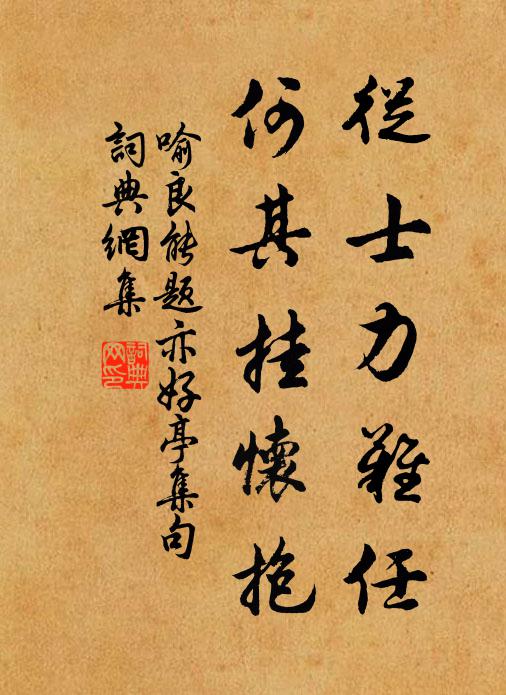 從士力難任
何其挂懷抱
喻良能題亦好亭集句
詞典網集
詞典網印